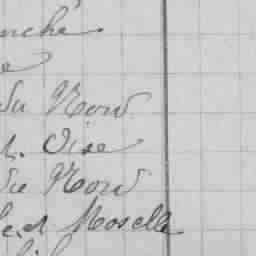 anche
e
du Nord
et. Oise
du Nord
le et Moselle